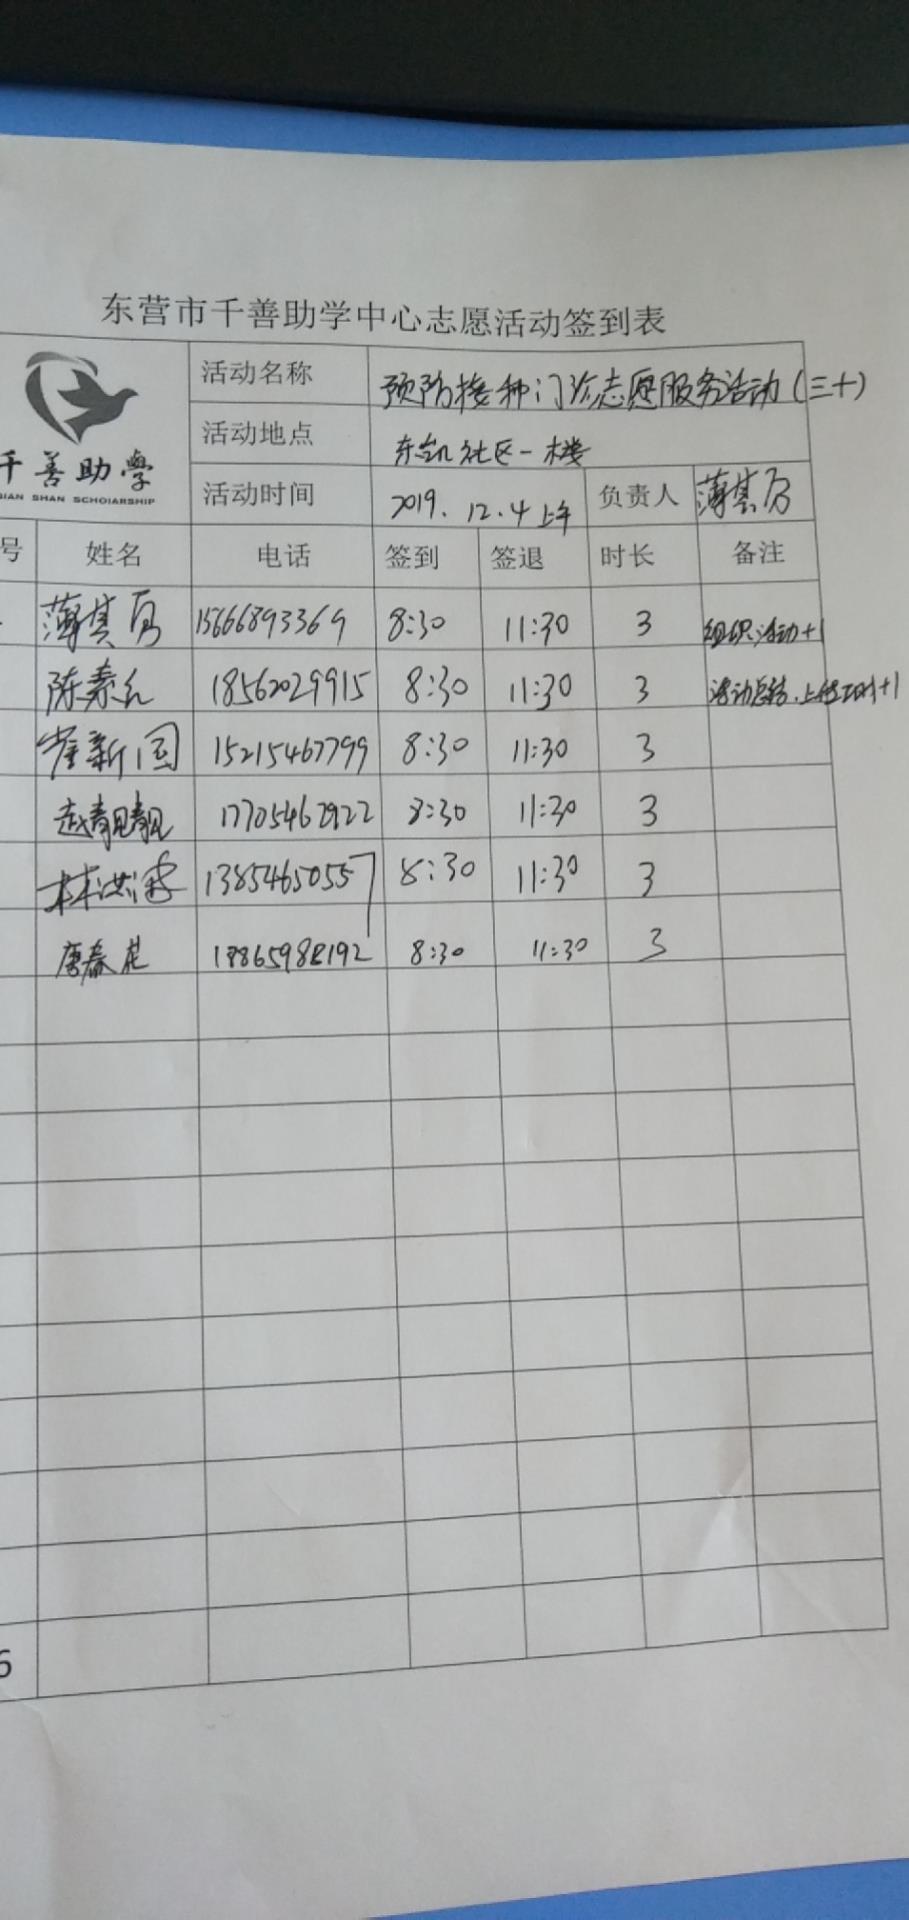 东营市千善助学中心志愿活动签到表
千善助学
QIAN SHAN SCHOIARSHIP
活动名称 预防接种门诊志愿服务活动(三十)
活动地点 东凯社区一楼
活动时间 2019.12.4上午 负责人 薄其厉
号 姓名 电话 签到 签退 时长 备注
薄其厉 15666893369 8:30 11:30 3 组织活动+1
陈素 18562029915 8:30 11:30 3 活动总结、上传工时+1
崔新国 15215467799 8:30 11:30 3
赵靓靓 17705462922 8:30 11:30 3
林洪 13854650557 8:30 11:30 3
唐春花 18865988192 8:30 11:30 3
6